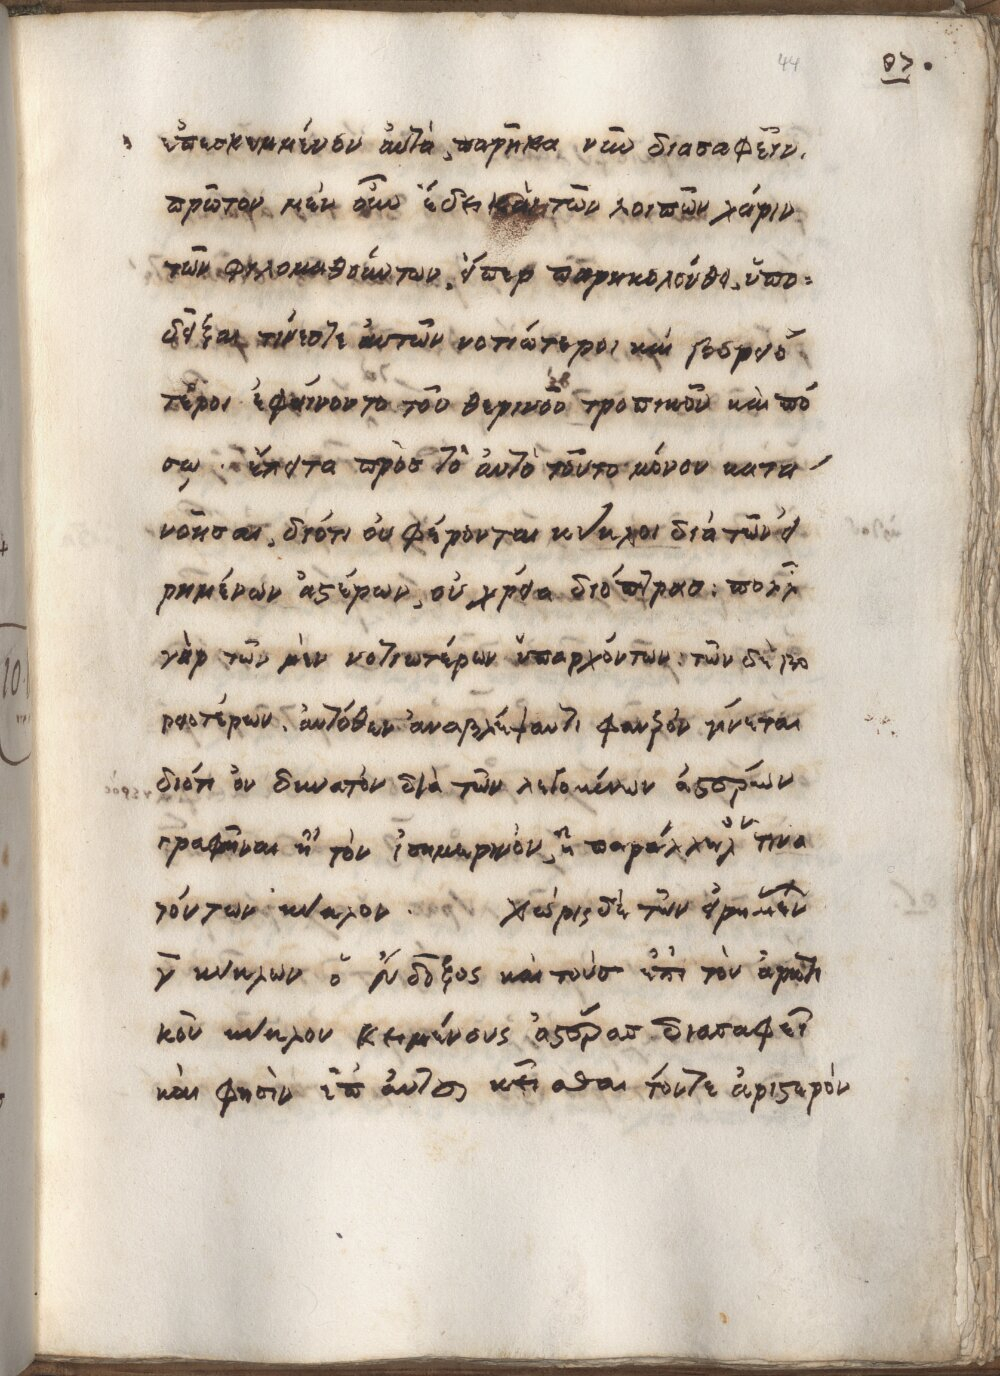 44 87.
ἐπεσκεμμένον ἀυτὰ, παρῆκα νῦν διασαφεῖν.
πρῶτον μὲν οὖν ἔδει καὶ τῶν λοιπῶν χάριν
τῶν φιλομαθούντων, ὅπερ παρηκολούθει, ὑπο=
δεῖξαι τίνεστε ἀυτῶν νοτιώτεροι καὶ βορειό
τεροι ἐφαίνοντο τοῦ θερινοῦ τροπικοῦ καὶ πό
σῳ. ἔπειτα πρὸσ τὸ ἀυτὸ τοῦτο μόνον κατα
νοῆσαι, διότι οὐ φέρονται κύκλοι διὰ τῶν εἰ
ρημένων ἀστέρων, οὐ χρεία διόπτρασ: πολλ
γὰρ τῶν μὲν νοτιωτέρων ὑπαρχόντων. τῶν δὲ βο
ρειοτέρων. ἀυτόθεν ἀναβλέψαντι φανερὸν γίνεται
διότι οὐ δυνατὸν διὰ τῶν λεγομένων ἀστέρων
γραφῆναι ἢ τὸν ἰσημερινὸν, ἢ παράλληλόν τινα
τούτων κύκλον. Χωρὶς δὲ τῶν εἰρημένων
γ κύκλων ὁ Εὔδοξος καὶ τοὺσ ἐπὶ τὸν ἀρκτι
κὸν κύκλον κειμένους ἀστέρασ διασαφεῖ
καὶ φησὶν ἐπ ἀυτοῦ κεῖσθαι τόντε ἀριστερὸν